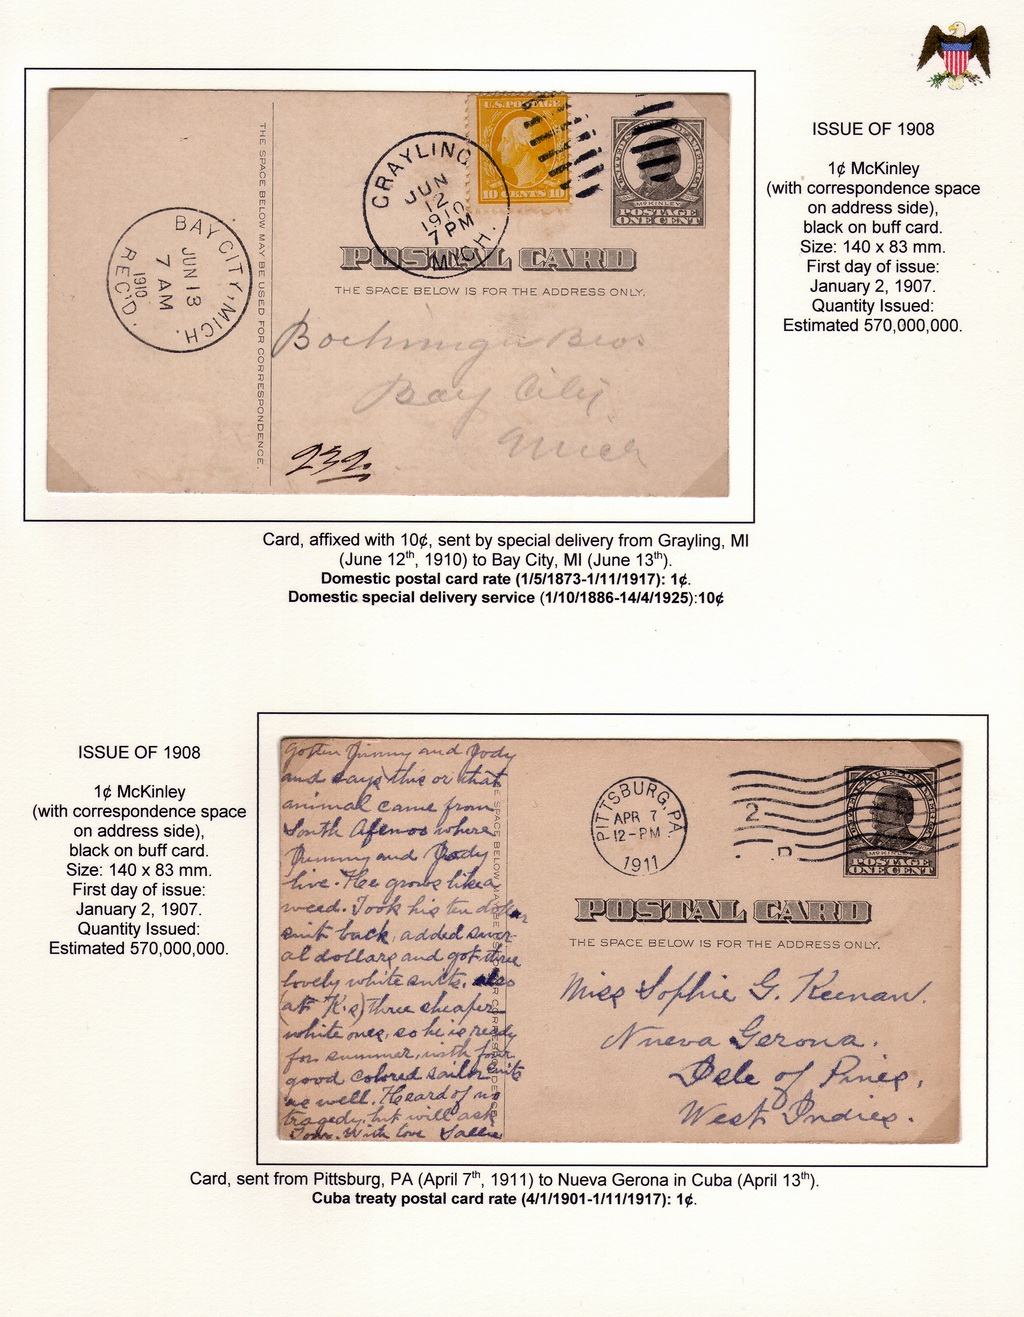 ISSUE OF 1908
1¢ McKinley
(with correspondence space
on address side),
black on buff card.
Size: 140 x 83 mm.
First day of issue:
January 2, 1907.
Quantity Issued:
Estimated 570,000,000.
U.S. POSTAGE
10 CENTS 10
GRAYLING
JUN
12
1910
7 PM
MICH.
McKINLEY
POSTAGE
ONE CENT
POSTAL CARD
THE SPACE BELOW IS FOR THE ADDRESS ONLY.
THE SPACE BELOW MAY BE USED FOR CORRESPONDENCE.
BAY CITY, MICH.
JUN 13
7 AM
1910
REC'D.
Bros
Bay City
Mich
232
Card, affixed with 10¢, sent by special delivery from Grayling, MI
(June 12th, 1910) to Bay City, MI (June 13th).
Domestic postal card rate (1/5/1873-1/11/1917): 1¢.
Domestic special delivery service (1/10/1886-14/4/1925):10¢
ISSUE OF 1908
1¢ McKinley
(with correspondence space
on address side),
black on buff card.
Size: 140 x 83 mm.
First day of issue:
January 2, 1907.
Quantity Issued:
Estimated 570,000,000.
Jimmy and Jody
and says this or that
animal came from
South where
Jimmy and Jody
live. He grows like a
weed. Took his ten dollar
suit back, added sever-
al dollars and got three
lovely white suits. also
(at K's) three cheaper
white ones, so he is ready
for summer, with four
good colored sailor suits
as well. Heard of no
tragedy, but will ask
Tom. With love Sallie
THE SPACE BELOW MAY BE USED FOR CORRESPONDENCE.
PITTSBURG, PA.
APR 7
12-PM
1911
2
POSTAGE
ONE CENT
POSTAL CARD
THE SPACE BELOW IS FOR THE ADDRESS ONLY.
Miss Sophie G. Keenan.
Nueva Gerona.
Isle of Pines,
West Indies.
Card, sent from Pittsburg, PA (April 7th, 1911) to Nueva Gerona in Cuba (April 13th).
Cuba treaty postal card rate (4/1/1901-1/11/1917): 1¢.